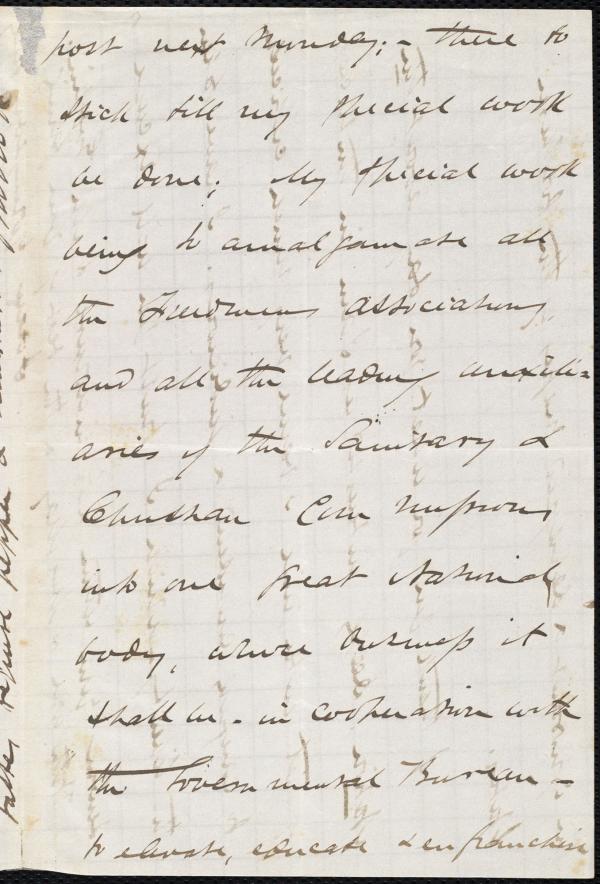 post next Monday; - there to
stick till my special work
be done; My special work
being to amalgamate all
the Freedmens associations,
and all the leading auxili=
aries of the Sanitary &
Christian Commissions
into one great National
body, whose business it
shall be - in cooperation with
the Governmental Bureau -
to elevate, educate & enfranchise